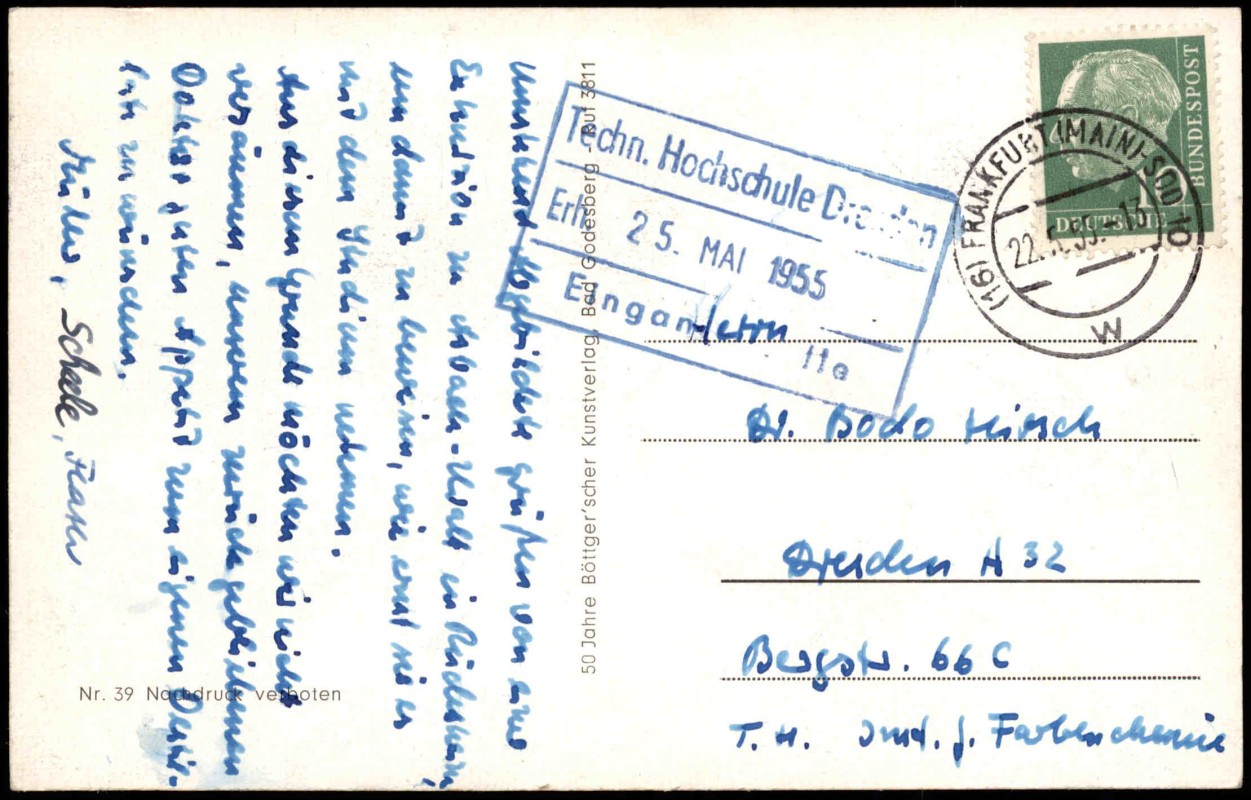 Unstrut
grüßen von einer
Exkursion zu in Rüdesheim,
um damit zu beweisen, wie ernst wir es
mit dem Studium nehmen.
Aus diesem Grunde möchten wir nicht
versäumen, unserem zurückgebliebenen
Doktor guten Appetit zum eigenen
zu wünschen.
Müller, Schade,
Nr. 39 Nachdruck verboten
50 Jahre Böttger'scher Kunstverlag, Bad Godesberg - Ruf 3811
Techn. Hochschule Dresden
Erh. 25. MAI 1955
Eingang
DEUTSCHE BUNDESPOST
10
(16) FRANKFURT (MAIN)-SÜD 10
22.5.55.-13
W
Herrn
Dr. Bodo Hirsch
Dresden A 32
Bergstr. 66 C
T. H. Inst. f. Farbenchemie